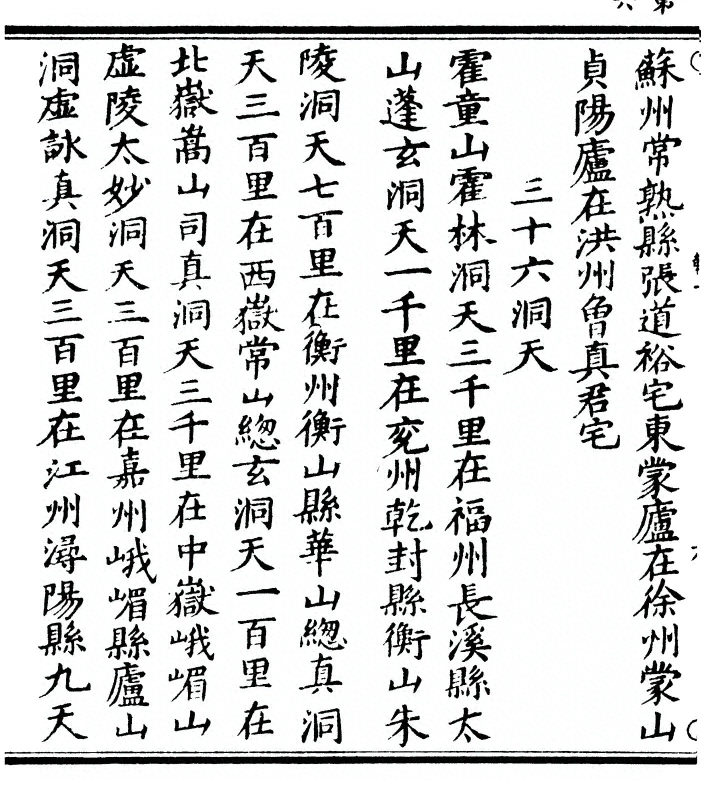 蘇州常熟縣張道裕宅東蒙廬在徐州蒙山
貞陽廬在洪州曾真君宅
三十六洞天
霍童山霍林洞天三千里在福州長溪縣太
山蓬玄洞天一千里在兖州乾封縣衡山朱
陵洞天七百里在衡州衡山縣華山緫真洞
天三百里在西嶽常山緫玄洞天一百里在
北嶽嵩山司真洞天三千里在中嶽峨嵋山
虛陵太妙洞天三百里在嘉州峨嵋縣廬山
洞虛詠真洞天三百里在江州潯陽縣九天